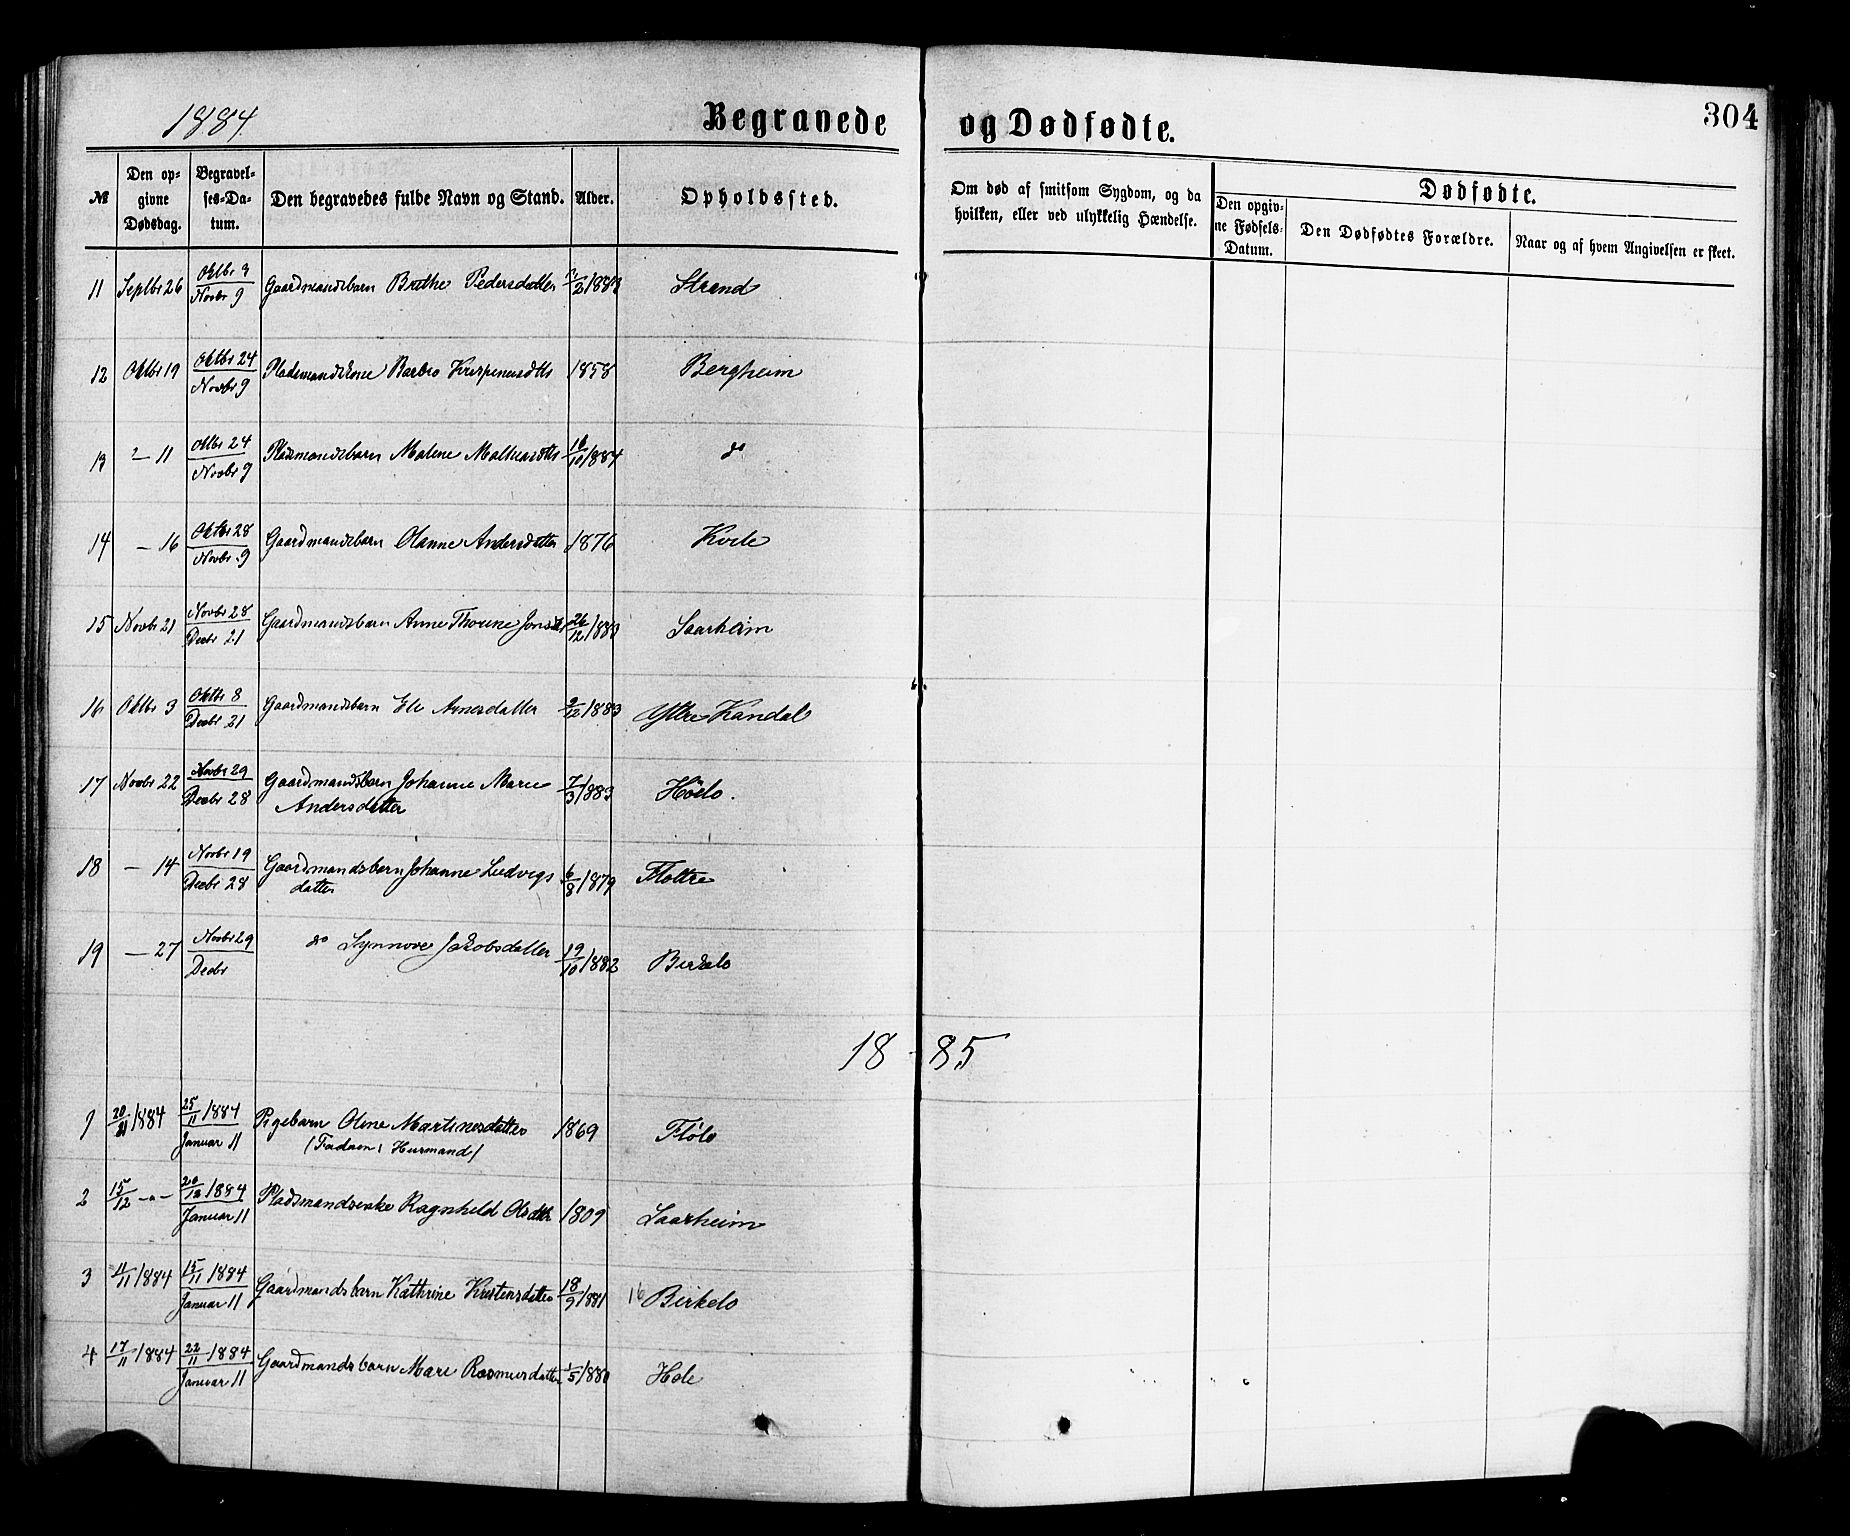 1884. Begravede og Dødfødte. 304
№ | Den opgivne Dødsdag. | Begravelses-Datum. | Den begravedes fulde Navn og Stand. | Alder. | Opholdssted. | Om død af smitsom Sygdom, og da hvilken, eller ved ulykkelig Hændelse. | Dødfødte. | Den opgivne Fødsels-Datum. | Den Dødfødtes Forældre. | Naar og af hvem Angivelsen er skeet.
11 Septbr 26 Oktbr 3 / Novbr 9 Gaardmandsbarn Brithe Pedersdatter /2 1883 Strand
12 Oktbr 19 Oktbr 24 / Novbr 9 Pladsmandskone Barbro Krispinusdtr 1858 Bergheim
13 " – 11 Oktbr 24 / Novbr 9 Pladsmandsbarn Malene Mathiasdtr 16/10 1884 do
14 – 16 Oktbr 28 / Novbr 9 Gaardmandsbarn Olanne Andersdatter 1876 Kvile
15 Novbr 21 Novbr 28 / Decbr 21 Gaardmandsbarn Anne Thorine Jonsdtr 26/12 1883 Saarheim
16 Oktbr 3 Oktbr 8 / Decbr 21 Gaardmandsbarn Eli Arnesdatter 2/12 1883 Yttre Kandal
17 Novbr 22 Novbr 29 / Decbr 28 Gaardmandsbarn Johanne Marie 7/3 1883 Höelo.
Andersdatter
18 – 14 Novbr 19 / Decbr 28 Gaardmandsbarn Johanne Ludvigs 6/8 1879 Flöttre
datter
19 – 27 Novbr 29 / Decbr do Synnove Jakobsdatter 19/10 1882 Birkelo
18 – 85
1 20/ 1884 25/11 1884 / Januar 11 Pigebarn Oline Martinesdatter 1869 Flölo
(Faderen: Huusmand)
2 15/12 – " – 20/12 1884 / Januar 11 Pladsmandsenke Ragnhild Olsdtr 1809 Saarheim
3 11/11 1884 15/11 1884 / Januar 11 Gaardmandsbarn Kathrine Kristensdatter 18/9 1881 16 Birkelo
4 17/11 1884 22/11 1884 / Januar 11 Gaardmandsbarn Mari Rasmusdatter 1/5 1880 Hole